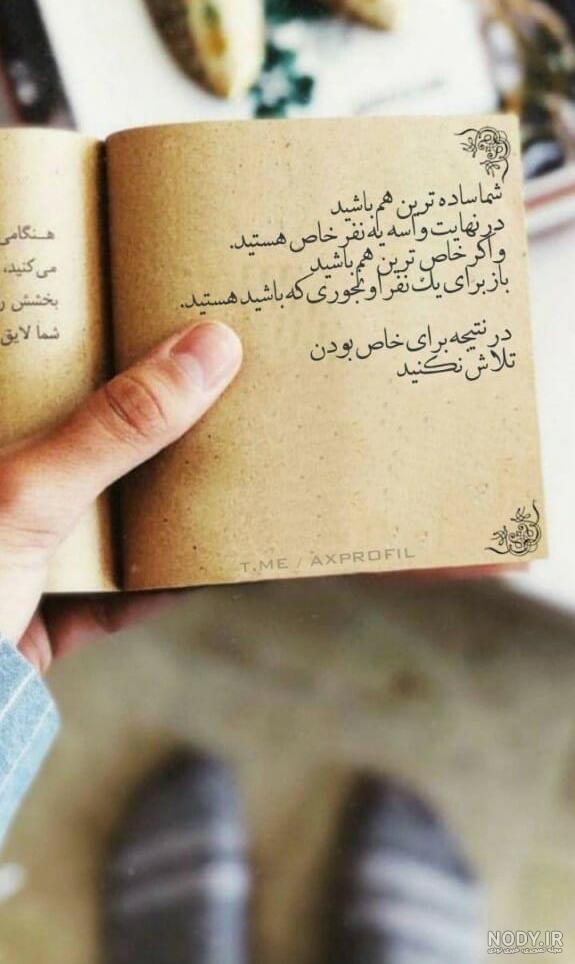 شما ساده ترین هم باشید
در نهایت واسه یه نفر خاص هستید.
و اگر خاص ترین هم باشید
باز برای یك نفر اونجوری که باید هستید.
در نتیجه برای خاص بودن
تلاش نکنید
هنگامی
می کنید،
بخشش ر
شما لایق
T.ME / AXPROFIL
NODY.IR